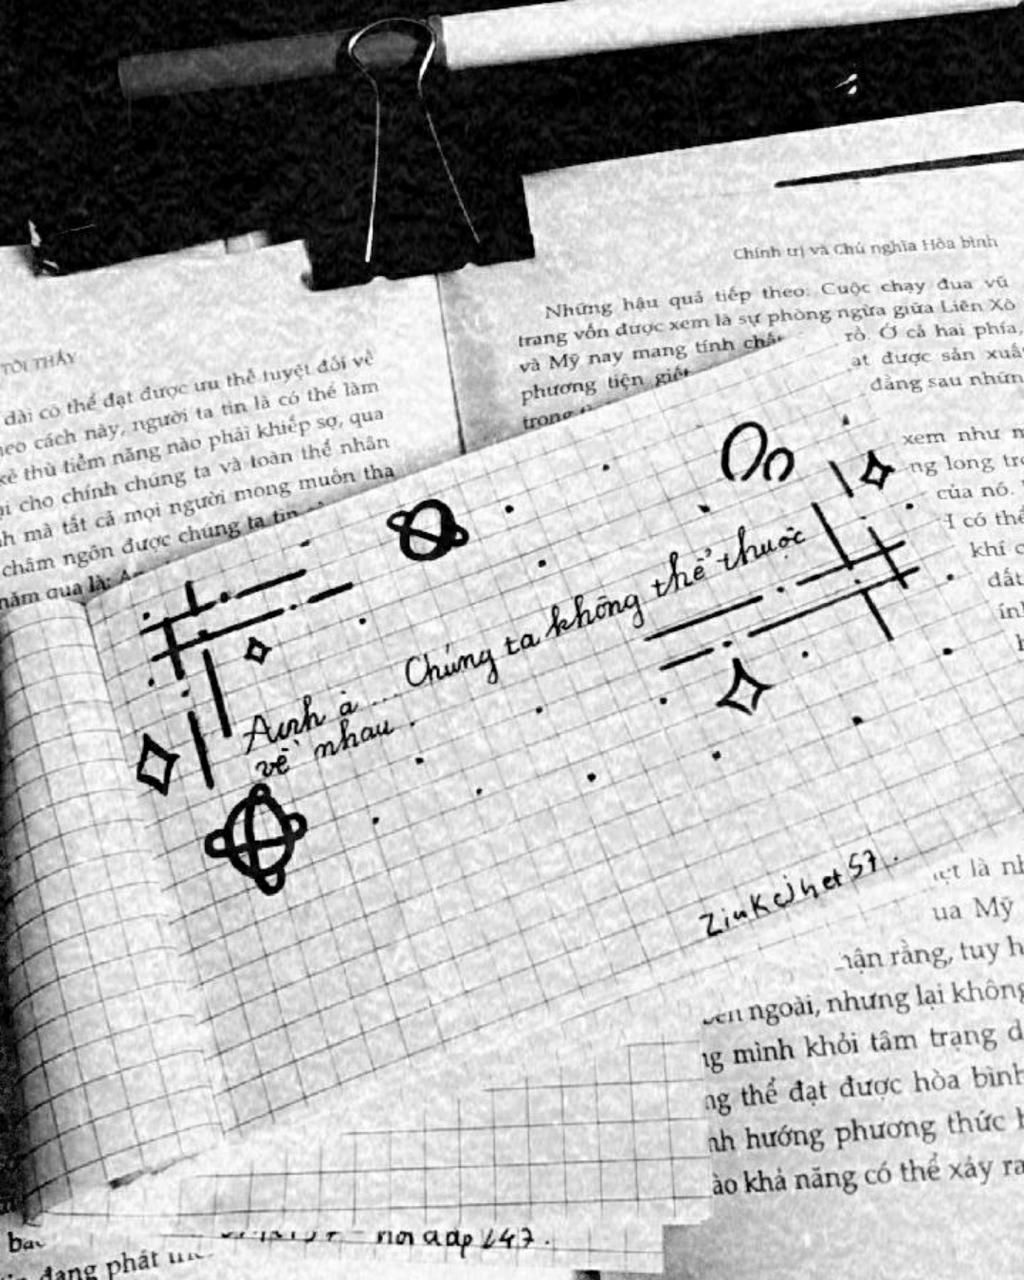 Chính trị và Chủ nghĩa Hòa bình
Những hậu quả tiếp theo: Cuộc chạy đua vũ
trang vốn được xem là sự phòng ngừa giữa Liên Xô
và Mỹ nay mang tính
rõ. Ở cả hai phía,
phương tiện
được sản
đằng sau
TÔI THẤY
dài có thể đạt được ưu thế tuyệt đối về
cách này, người ta tin là có thể làm
kẻ thù tiềm năng nào phải khiếp sợ, qua
cho chính chúng ta và toàn thể nhân
mà tất cả mọi người mong muốn tha
châm ngôn được chúng ta tin
năm qua là:
xem như
long
của nó.
có thể
khí
đất
Anh à... Chúng ta không thể thuộc
về nhau.
Zinkcjhet57.
là
Mỹ
rằng, tuy
ngoài, nhưng lại không
mình khỏi tâm trạng
thể đạt được hòa bình
hướng phương thức
khả năng có thể xảy ra
đang phát